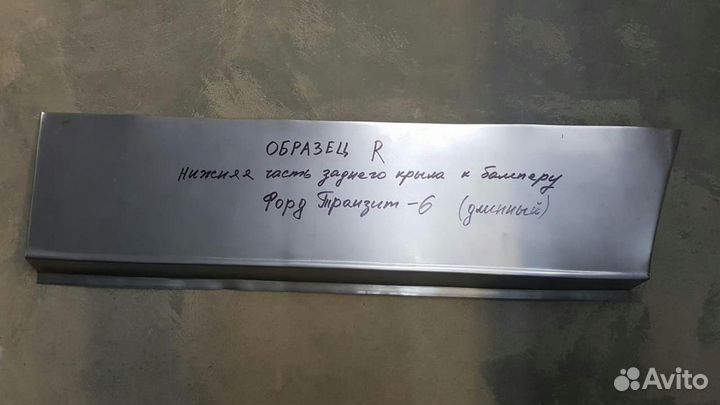 ОБРАЗЕЦ R
Нижняя часть заднего крыла к бамперу
Форд Транзит-6 (длинный)
Avito